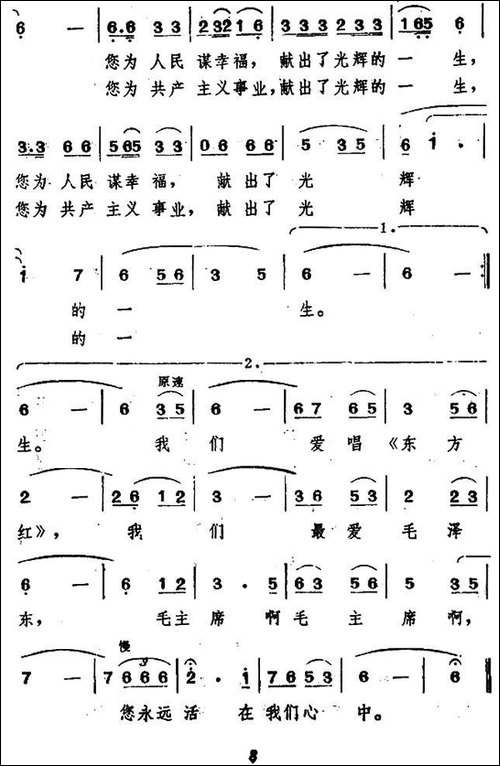 6 — | 6.6 3 3 | 2 3 2 1 6 | 3 3 3 2 3 3 | 1 6 5 6 |
您为 人民 谋幸福， 献出了光辉的一 生，
您为 共产 主义事业，献出了光辉的一 生，
3.3 6 6 | 5 6 5 3 3 | 0 6 6 6 | 5 3 5 | 6 1 .
您为 人民 谋幸福， 献 出了 光 辉
您为 共产 主义 事业， 献 出了 光 辉
1.
1 7 | 6 5 6 | 3 5 | 6 — | 6 — :
的 一 生。
的 一
2.
原速
6 — | 6 3 5 | 6 — | 6 7 6 5 | 3 5 6 |
生。 我 们 爱 唱《东 方
2 — | 2 6 1 2 | 3 — | 3 6 5 3 | 2 2 3 |
红》， 我 们 最 爱 毛 泽
6 — | 6 1 2 | 3 . 5 | 6 3 5 6 | 5 3 5 |
东， 毛主 席 啊毛 主 席 啊，
慢
3
7 — | 7 6 6 6 | 2 . 1 | 7 6 5 3 | 6 — | 6 |
您永远 活 在 我们心 中。